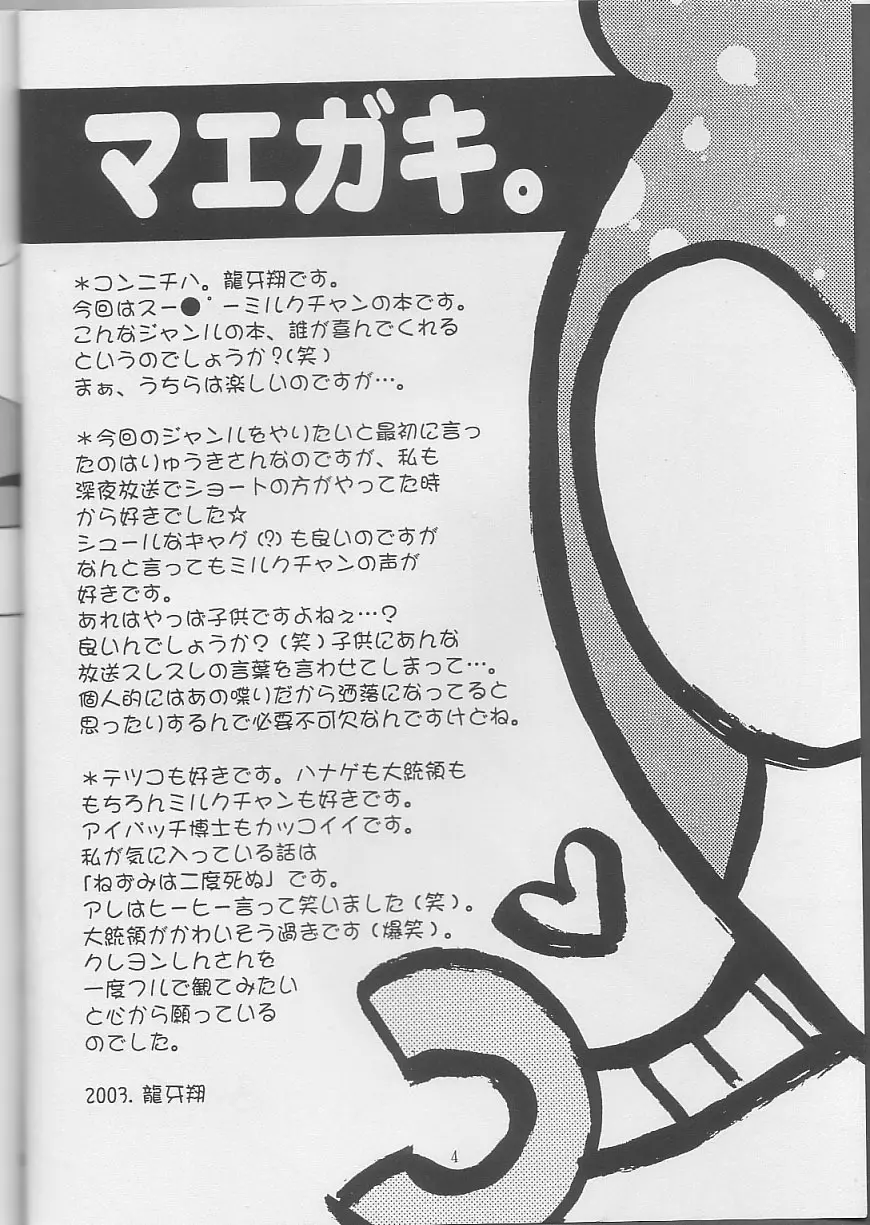 マエガキ。
＊コンニチハ。龍牙翔です。
今回はスー●゜ーミルクチャンの本です。
こんなジャンルの本、誰が喜んでくれる
というのでしょうか？(笑)
まぁ、うちらは楽しいのですが…。
＊今回のジャンルをやりたいと最初に言っ
たのはりゅうきさんなのですが、私も
深夜放送でショートの方がやってた時
から好きでした☆
シュールなギャグ(？)も良いのですが
なんと言ってもミルクチャンの声が
好きです。
あれはやっぱ子供ですよねぇ…？
良いんでしょうか？(笑)子供にあんな
放送スレスレの言葉を言わせてしまって…。
個人的にはあの喋りだから洒落になってると
思ったりするんで必要不可欠なんですけどね。
＊テツコも好きです。ハナゲも大統領も
もちろんミルクチャンも好きです。
アイパッチ博士もカッコイイです。
私が気に入っている話は
「ねずみは二度死ぬ」です。
アレはヒーヒー言って笑いました(笑)。
大統領がかわいそう過ぎです(爆笑)。
クレヨンしんさんを
一度フルで観てみたい
と心から願っている
のでした。
2003. 龍牙翔
4